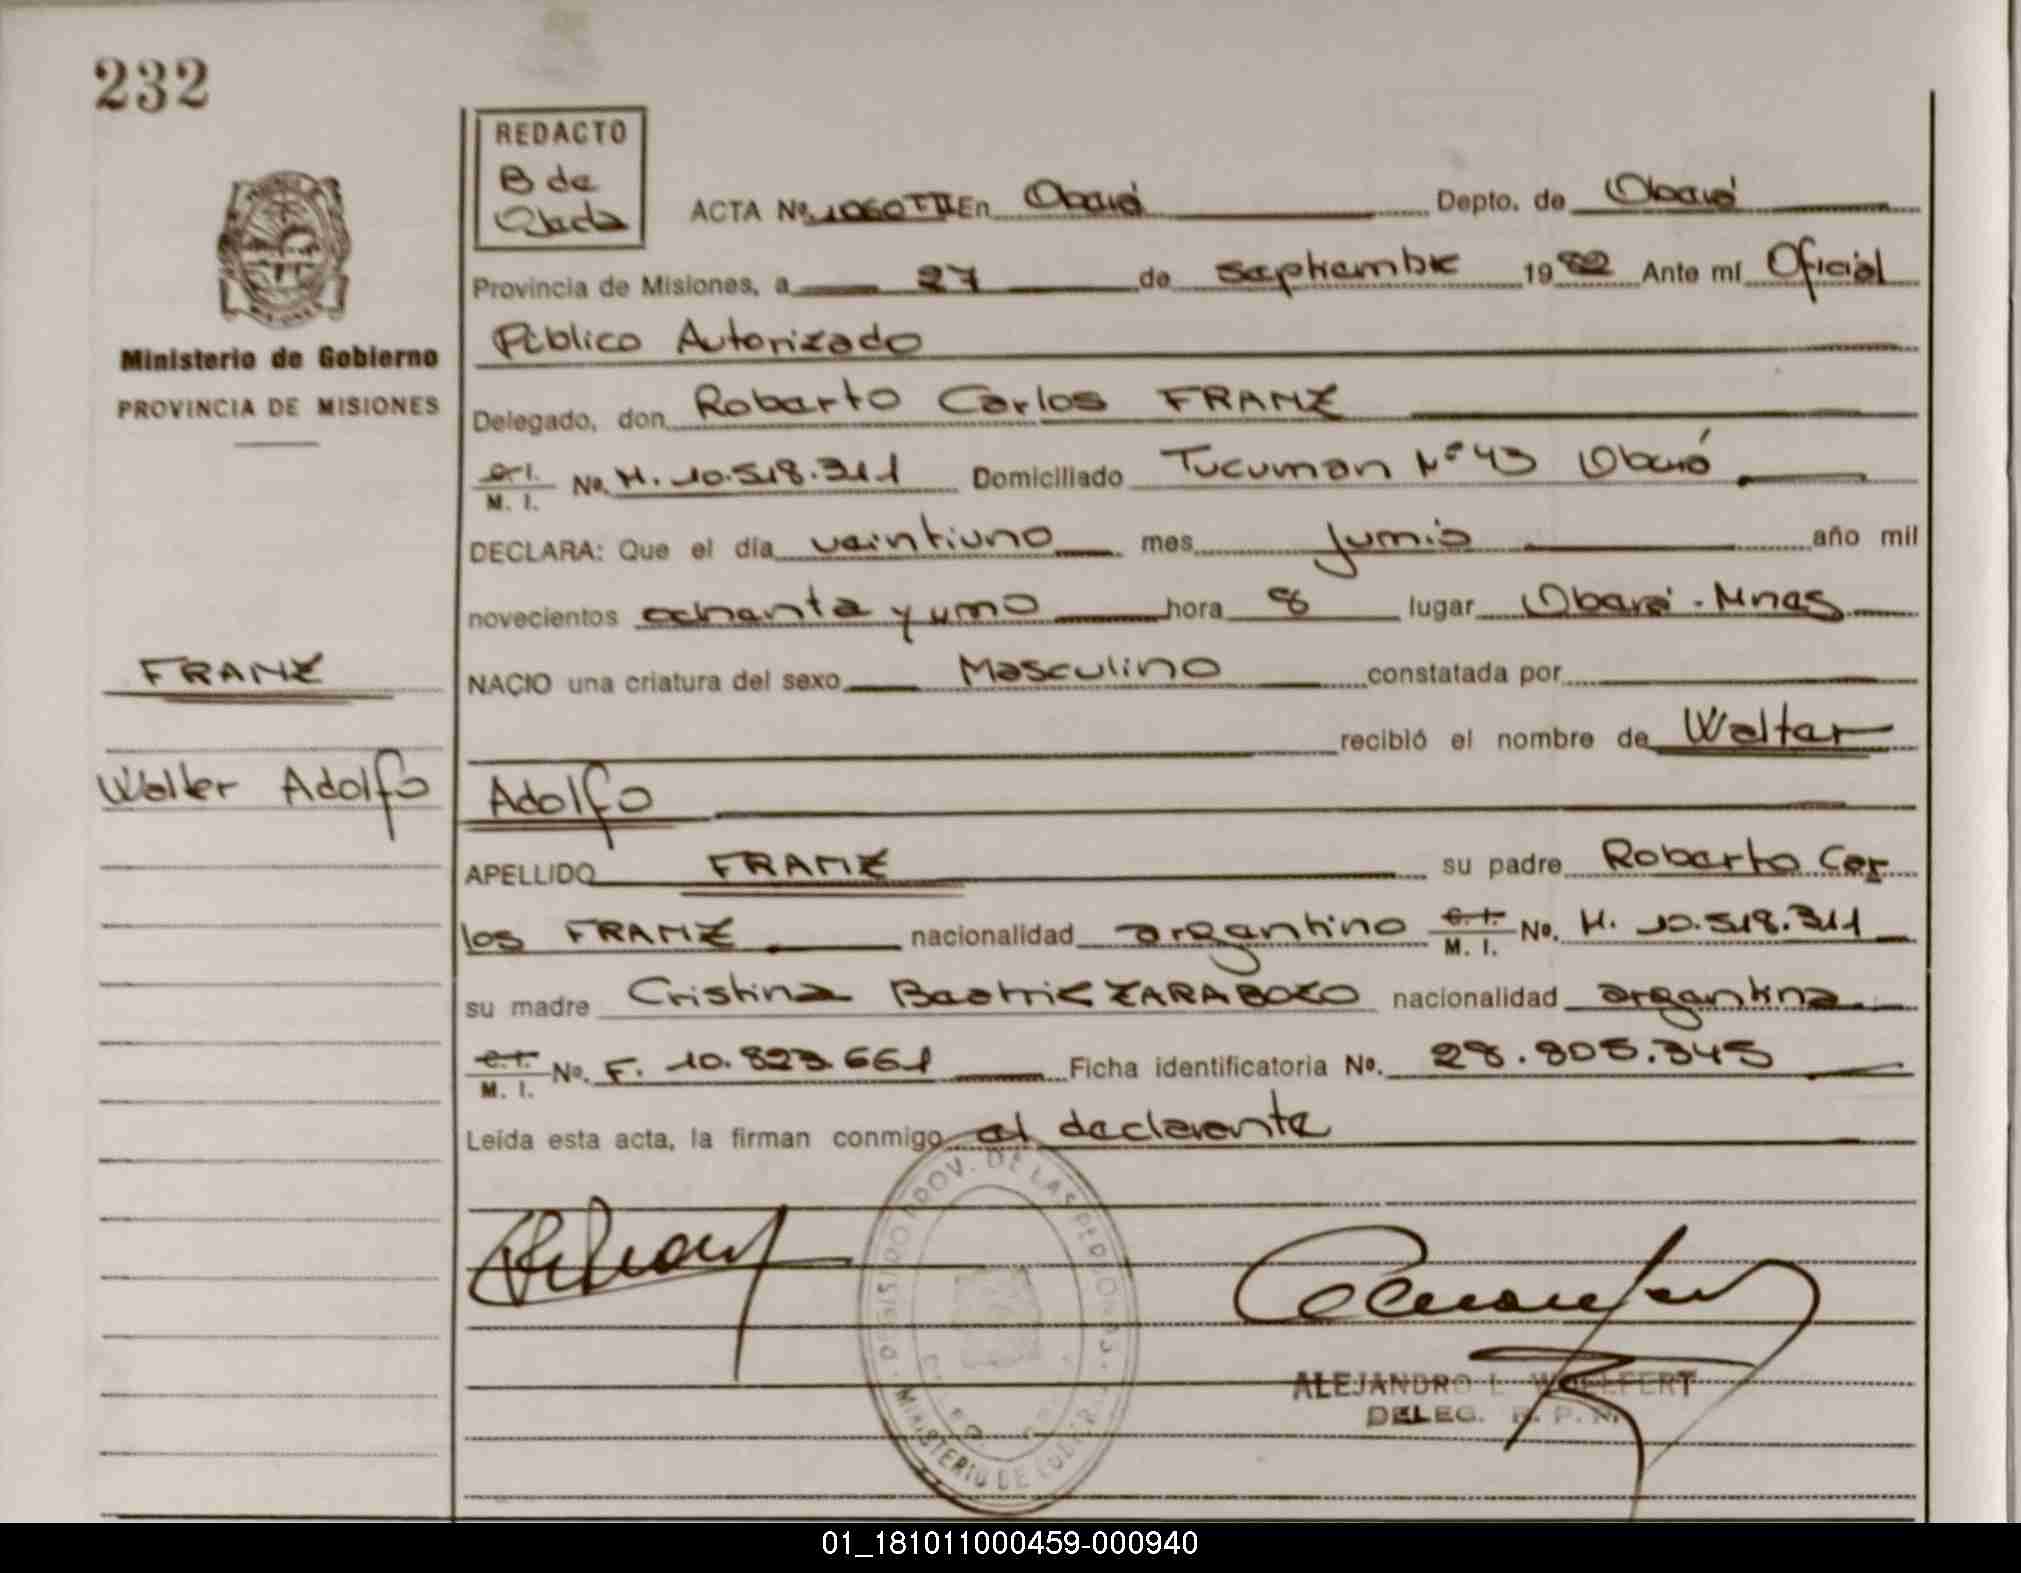 232
REDACTO
B de
Ojeda
ACTA Nº 1060 TII En Oberá Depto. de Oberá
Provincia de Misiones, a 27 de septiembre 1982 Ante mí Oficial
Público Autorizado
Delegado, don Roberto Carlos FRANZ
C. I.
M. I. Nº. M. 10.518.311 Domiciliado Tucuman Nº 43 Oberá
DECLARA: Que el día veintiuno mes junio año mil
novecientos ochenta y uno hora 8 lugar Oberá - Mnes
NACIO una criatura del sexo Masculino constatada por
recibió el nombre de Walter
Adolfo
APELLIDO FRANZ su padre Roberto Car
los FRANZ nacionalidad argentino C. I.
M. I. Nº. M. 10.518.311
su madre Cristina Beatriz ZARABOZO nacionalidad argentina
C. I.
M. I. Nº. F. 10.823.661 Ficha identificatoria Nº. 28.805.345
Leída esta acta, la firman conmigo el declarante
Ministerio de Gobierno
PROVINCIA DE MISIONES
FRANZ
Walter Adolfo
REGISTRO PROV. DE LAS PERSONAS
MINISTERIO DE GOBIER
ALEJANDRO L. WOELFERT
DELEG. R. P. P.
01_181011000459-000940